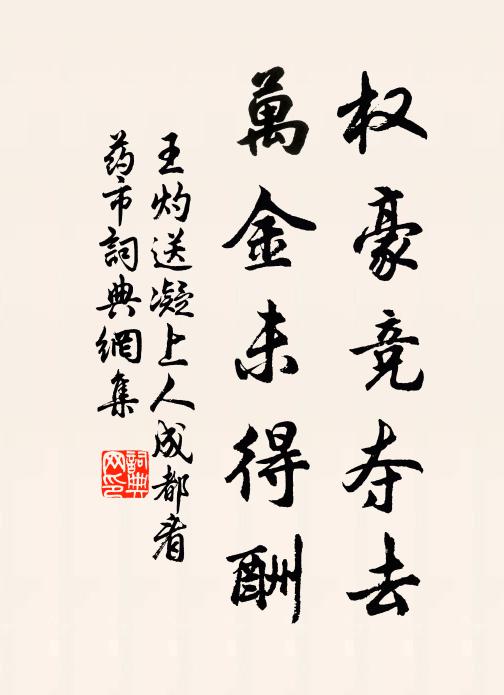 权豪竞夺去
萬金未得酬
王灼送凝上人成都看
药市詞典網集
詞典
网印